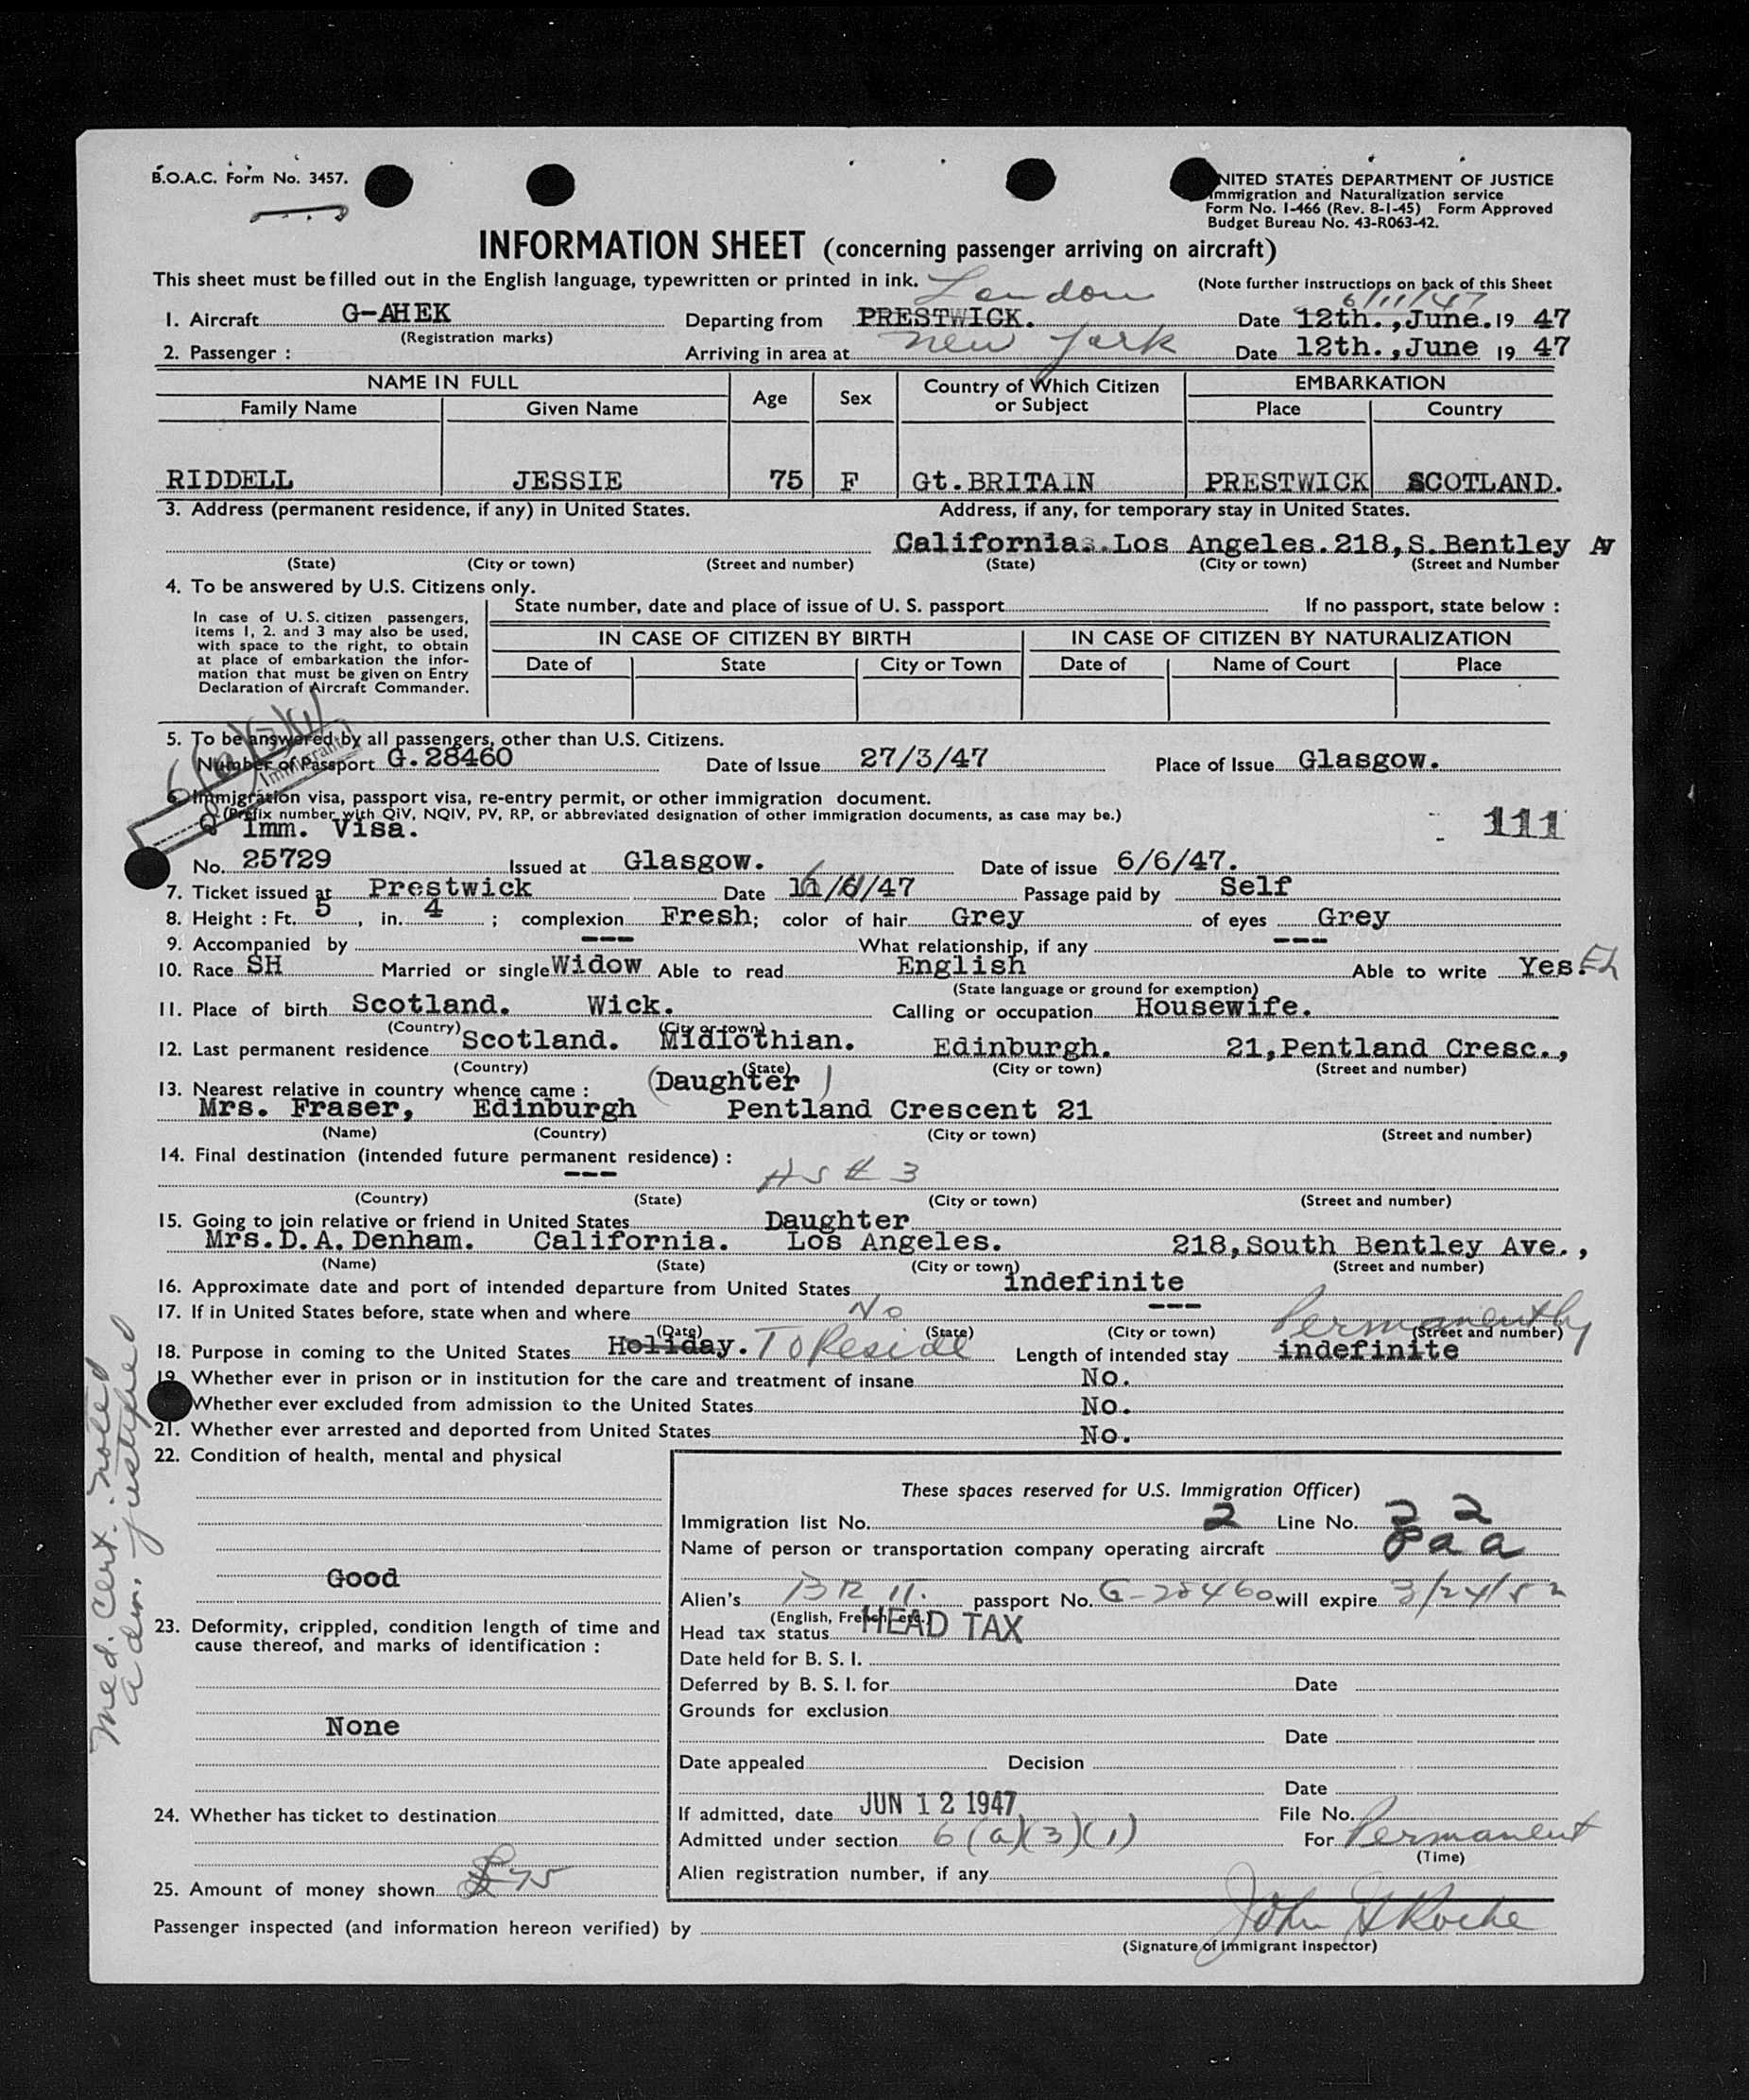 B.O.A.C. Form No. 3457.
NITED STATES DEPARTMENT OF JUSTICE
Immigration and Naturalization service
Form No. I-466 (Rev. 8-1-45) Form Approved
Budget Bureau No. 43-R063-42.
INFORMATION SHEET (concerning passenger arriving on aircraft)
This sheet must be filled out in the English language, typewritten or printed in ink.
(Note further instructions on back of this Sheet
London
6/11/47
1. Aircraft G-AHEK Departing from PRESTWICK. Date 12th.,June.19 47
(Registration marks)
2. Passenger : Arriving in area at New York Date 12th.,June 19 47
NAME IN FULL Age Sex Country of Which Citizen or Subject EMBARKATION
Family Name Given Name Place Country
RIDDELL JESSIE 75 F Gt.BRITAIN PRESTWICK SCOTLAND.
3. Address (permanent residence, if any) in United States. Address, if any, for temporary stay in United States.
California..Los Angeles.218,S.Bentley Av
(State) (City or town) (Street and number) (State) (City or town) (Street and Number
4. To be answered by U.S. Citizens only.
In case of U.S. citizen passengers,
items 1, 2. and 3 may also be used,
with space to the right, to obtain
at place of embarkation the infor-
mation that must be given on Entry
Declaration of Aircraft Commander.
State number, date and place of issue of U. S. passport If no passport, state below :
IN CASE OF CITIZEN BY BIRTH IN CASE OF CITIZEN BY NATURALIZATION
Date of State City or Town Date of Name of Court Place
5. To be answered by all passengers, other than U.S. Citizens.
6(a)(3)(1)
Immigrant
Number of Passport G.28460 Date of Issue 27/3/47 Place of Issue Glasgow.
6. Immigration visa, passport visa, re-entry permit, or other immigration document.
(Prefix number with QIV, NQIV, PV, RP, or abbreviated designation of other immigration documents, as case may be.)
Q Imm. Visa. 111
No. 25729 Issued at Glasgow. Date of issue 6/6/47.
7. Ticket issued at Prestwick Date 11/6/47 Passage paid by Self
8. Height : Ft. 5, in. 4 ; complexion Fresh; color of hair Grey of eyes Grey
9. Accompanied by --- What relationship, if any ---
10. Race SH Married or single Widow Able to read English Able to write Yes. Eh
(State language or ground for exemption)
11. Place of birth Scotland. Wick. Calling or occupation Housewife.
(Country) (City or town)
12. Last permanent residence Scotland. Midlothian. Edinburgh. 21,Pentland Cresc.,
(Country) (State) (City or town) (Street and number)
13. Nearest relative in country whence came : (Daughter)
Mrs. Fraser, Edinburgh Pentland Crescent 21
(Name) (Country) (City or town) (Street and number)
14. Final destination (intended future permanent residence) :
---
(Country) (State) (City or town) (Street and number)
15. Going to join relative or friend in United States Daughter
Mrs.D.A.Denham. California. Los Angeles. 218,South Bentley Ave.,
(Name) (State) (City or town) (Street and number)
16. Approximate date and port of intended departure from United States indefinite
17. If in United States before, state when and where No ---
(Date) (State) (City or town) (Street and number)
Permanently
18. Purpose in coming to the United States Holiday. To Reside Length of intended stay indefinite
19. Whether ever in prison or in institution for the care and treatment of insane No.
Whether ever excluded from admission to the United States No.
21. Whether ever arrested and deported from United States No.
22. Condition of health, mental and physical
Good
23. Deformity, crippled, condition length of time and
cause thereof, and marks of identification :
None
24. Whether has ticket to destination
25. Amount of money shown £75
Med. Cert. noted
adm. justified
These spaces reserved for U.S. Immigration Officer)
Immigration list No. 2 Line No. 2 2
Name of person or transportation company operating aircraft Paa
Alien's BRIT. passport No. G-28460 will expire 3/24/52
(English, French, etc.)
Head tax status HEAD TAX
Date held for B. S. I.
Deferred by B. S. I. for Date
Grounds for exclusion
Date
Date appealed Decision
Date
If admitted, date JUN 12 1947 File No.
Admitted under section 6(a)(3)(1) For Permanent
(Time)
Alien registration number, if any
Passenger inspected (and information hereon verified) by John H Roche
(Signature of Immigrant Inspector)